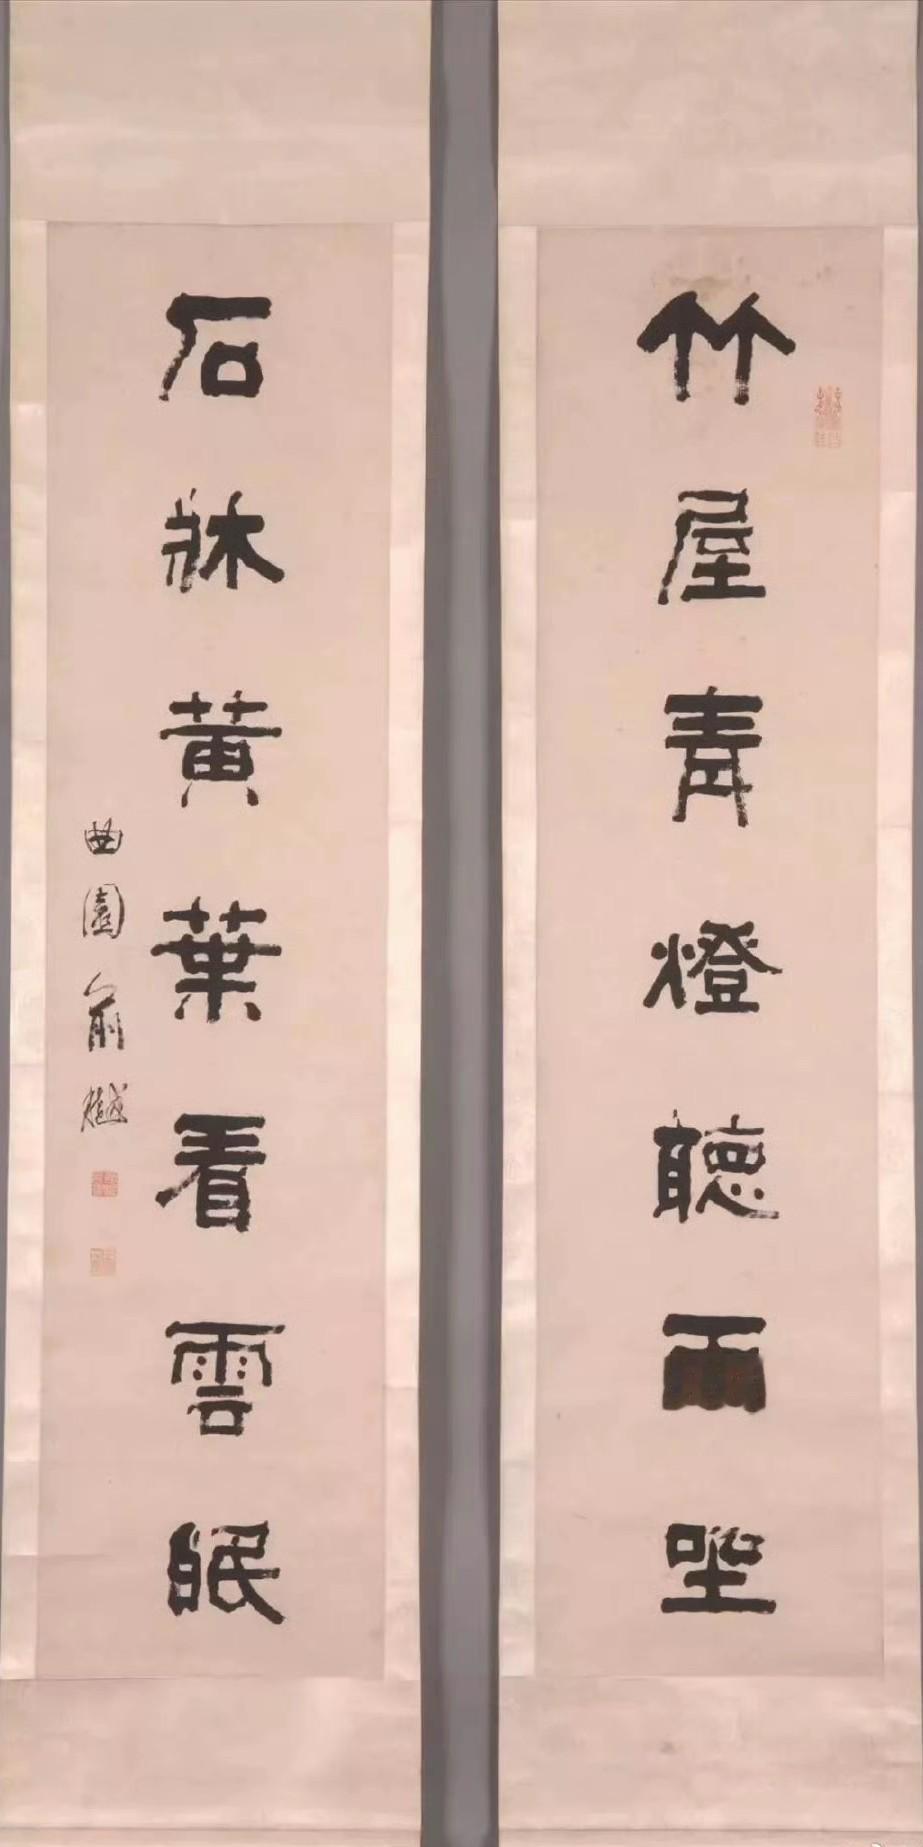 竹屋青燈聽雨坐
石牀黃葉看雲眠
曲園俞樾